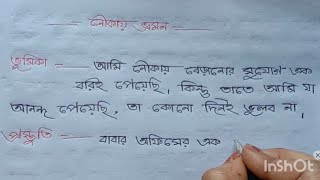 নৌকায় ভ্রমন
ভূমিকা — আমি নৌকায় বেড়ানোর সুযোগ এক
বারই পেয়েছি। কিন্তু তাতে আমি যা
আনন্দ পেয়েছি, তা কোনো দিনই ভুলব না।
প্রস্তুতি — বাবার অফিসের এক
InShOt